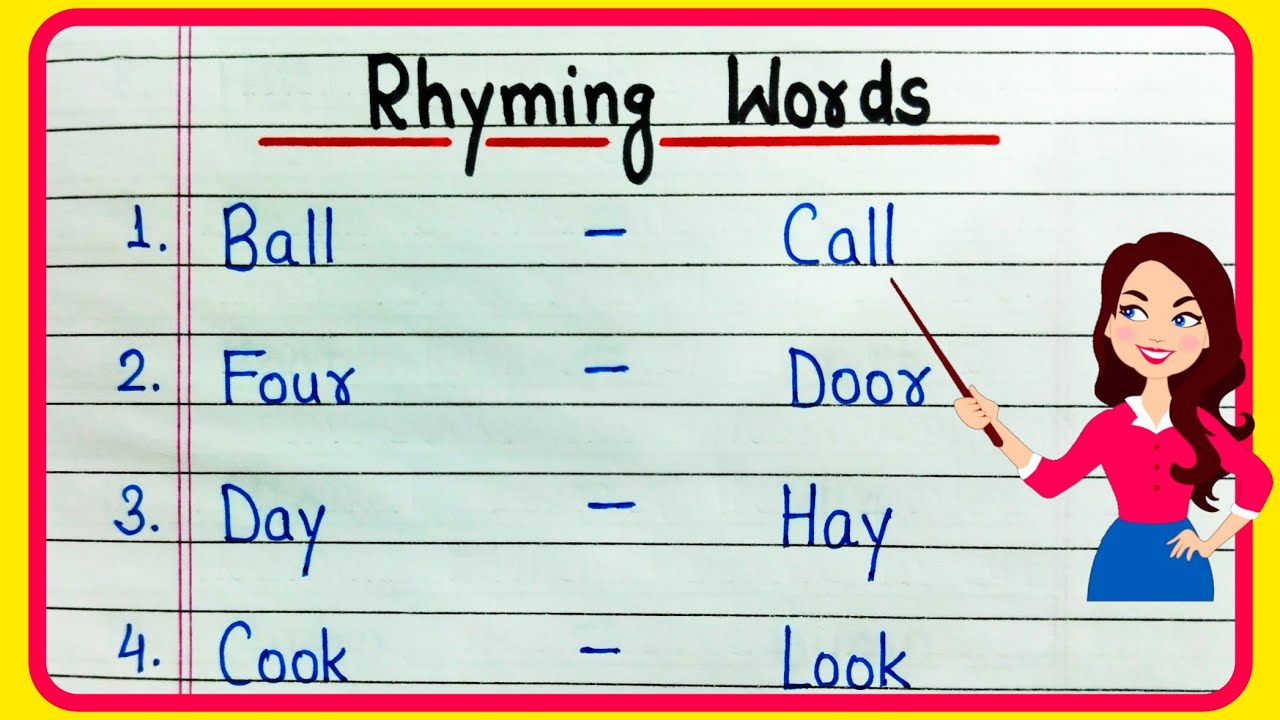 Rhyming Words
1. Ball - Call
2. Four - Door
3. Day - Hay
4. Cook - Look